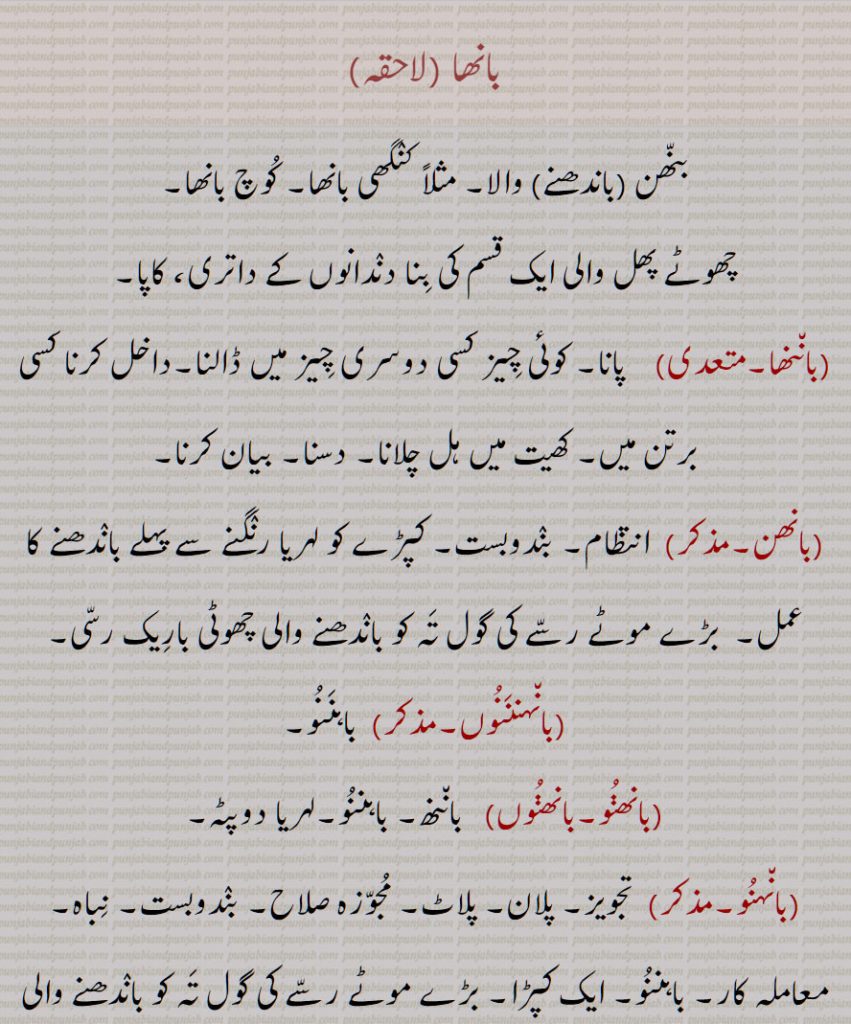 بانھا (لاحقہ)
بنّھن (باندھنے) والا۔ مثلاً کنْگھی بانھا۔ کُوچ بانھا۔
چھوٹے پھل والی ایک قسم کی بِنا دنْدانوں کے داتری، کاپا۔
(بانّنھا۔متعدی) پانا۔ کوئی چِیز کسی دوسری چِیز میں ڈالنا۔داخل کرنا کسی
برتن میں۔ کھیت میں ہل چلانا۔ دسنا۔ بیان کرنا۔
(بانھن۔مذکر) انتظام۔ بنْدوبست۔ کپڑے کو لہریا رنْگنے سے پہلے بانْدھنے کا
عمل۔ بڑے موٹے رسّے کی گول تَہ کو بانْدھنے والی چھوٹی بارِیک رسّی۔
(بانّہننَنُوں۔مذکر) باہنَنُو۔
(بانھنُو۔بانھنُوں) بانّنھ۔ باہننُو۔لہریا دوپٹہ۔
(بانّہنُو۔مذکر) تجویز۔ پلان۔ پلاٹ۔ مُجوّزہ صلاح۔ بنْدوبست۔ نِباہ۔
معاملہ کار۔ باہننُو۔ ایک کپڑا۔ بڑے موٹے رسّے کی گول تَہ کو بانْدھنے والی
punjabiandpunjab.com